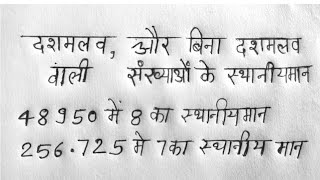 दशमलव, और बिना दशमलव
वाली संख्याओं के स्थानीयमान
48950 में 8 का स्थानीयमान
256.725 मे 7 का स्थानीय मान